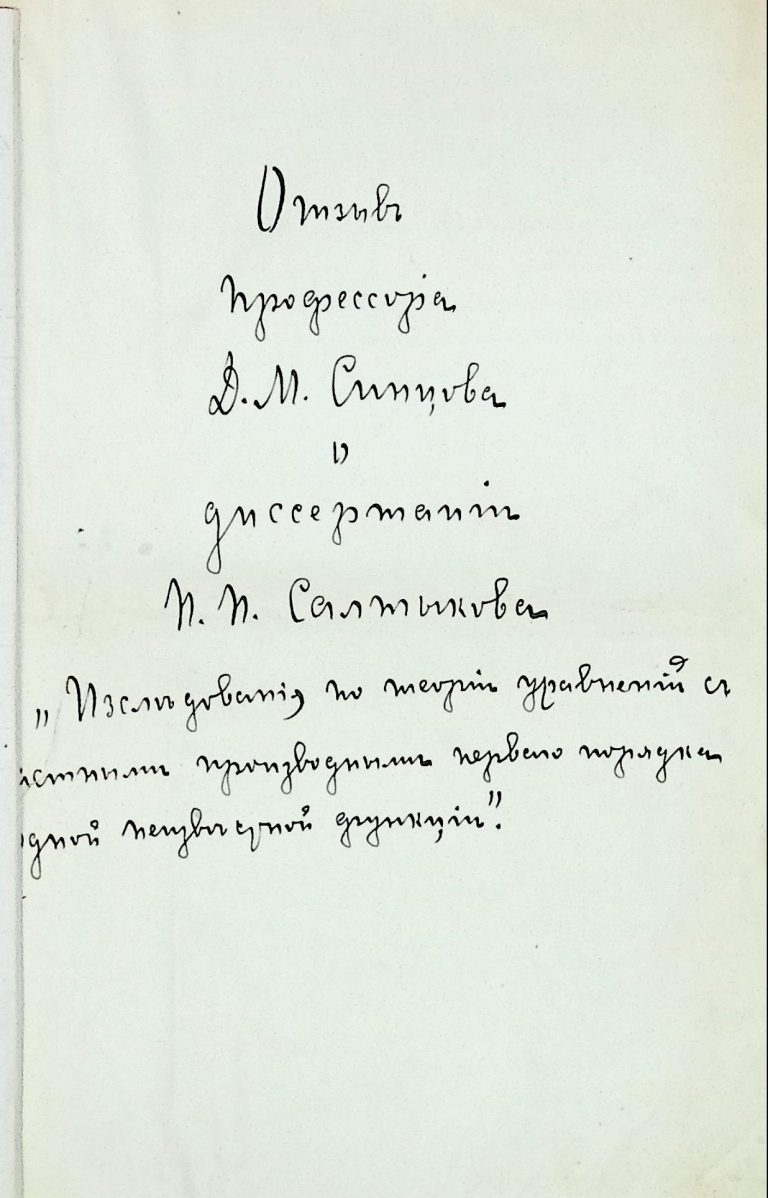 Отзывъ
профессора
Д. М. Синцова
о
диссертаціи
Н. Н. Салтыкова
„Изслѣдованія по теоріи уравненій съ
астными производными перваго порядка
дной неизвѣстной функціи".